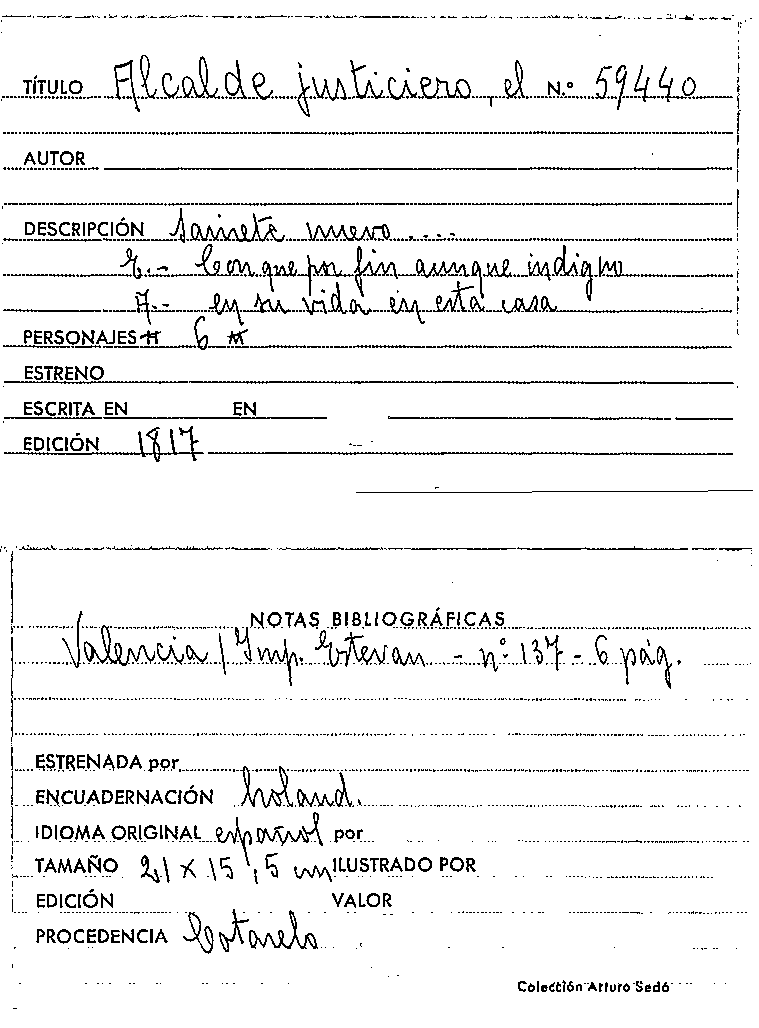 TÍTULO Alcalde justiciero, el N.º 59440
AUTOR
DESCRIPCIÓN Sainete nuevo ....
E.- Con que por fin aunque indigno
A.- en su vida en esta casa
PERSONAJES # 6 #
ESTRENO
ESCRITA EN EN
EDICIÓN 1817
NOTAS BIBLIOGRÁFICAS
Valencia / Imp. Estevan - nº 137 - 6 pág.
ESTRENADA por
ENCUADERNACIÓN holand.
IDIOMA ORIGINAL español por
TAMAÑO 21 x 15,5 cm ILUSTRADO POR
EDICIÓN VALOR
PROCEDENCIA Cotarelo
Colección Arturo Sedó